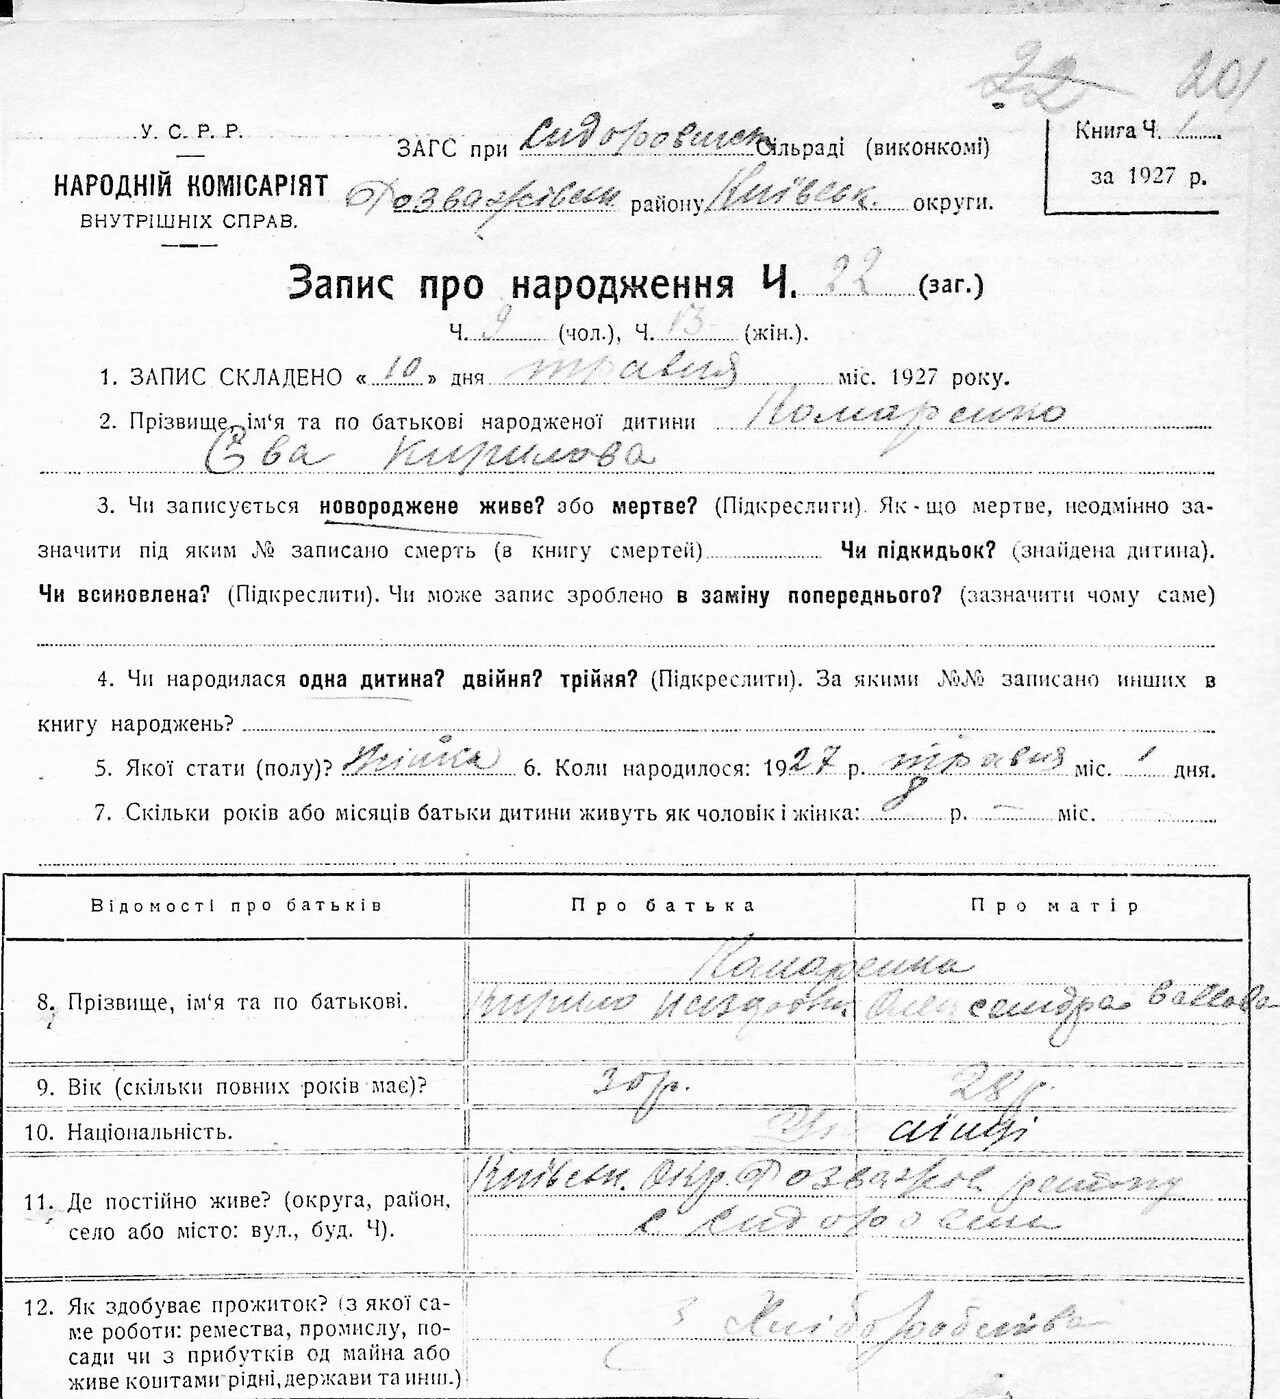 22 20
У. С. Р. Р.
НАРОДНІЙ КОМІСАРІЯТ
ВНУТРІШНІХ СПРАВ.
ЗАГС при Сидоровиськ Сільраді (виконкомі)
Розважівськ району Київськ. округи.
Книга Ч. 1
за 1927 р.
Запис про народження Ч. 22 (заг.)
Ч. 9 (чол.), Ч. 13 (жін.).
1. ЗАПИС СКЛАДЕНО «10» дня травня міс. 1927 року.
2. Прізвище, ім'я та по батькові народженої дитини Комаренко
Єва Кирилова
3. Чи записується новороджене живе? або мертве? (Підкреслити). Як-що мертве, неодмінно за-
значити під яким № записано смерть (в книгу смертей) Чи підкидьок? (знайдена дитина).
Чи всиновлена? (Підкреслити). Чи може запис зроблено в заміну попереднього? (зазначити чому саме)
4. Чи народилася одна дитина? двійня? трійня? (Підкреслити). За якими №№ записано инших в
книгу народжень?
5. Якої стати (полу)? жінка 6. Коли народилося: 1927 р. травня міс. 1 дня.
7. Скільки років або місяців батьки дитини живуть як чоловік і жінка: 8 р. — міс.
Відомості про батьків Про батька Про матір
8. Прізвище, ім'я та по батькові.
Комаренка
Кирило Олександра
9. Вік (скільки повних років має)? 30 р. 28 р.
10. Національність. Українці
11. Де постійно живе? (округа, район,
село або місто: вул., буд. Ч).
Київськ. Окр. Розважів. району
с Сидоровичи
12. Як здобуває прожиток? (з якої са-
ме роботи: ремества, промислу, по-
сади чи з прибутків од майна або
живе коштами рідні, держави та инш.)
З Хліборобства